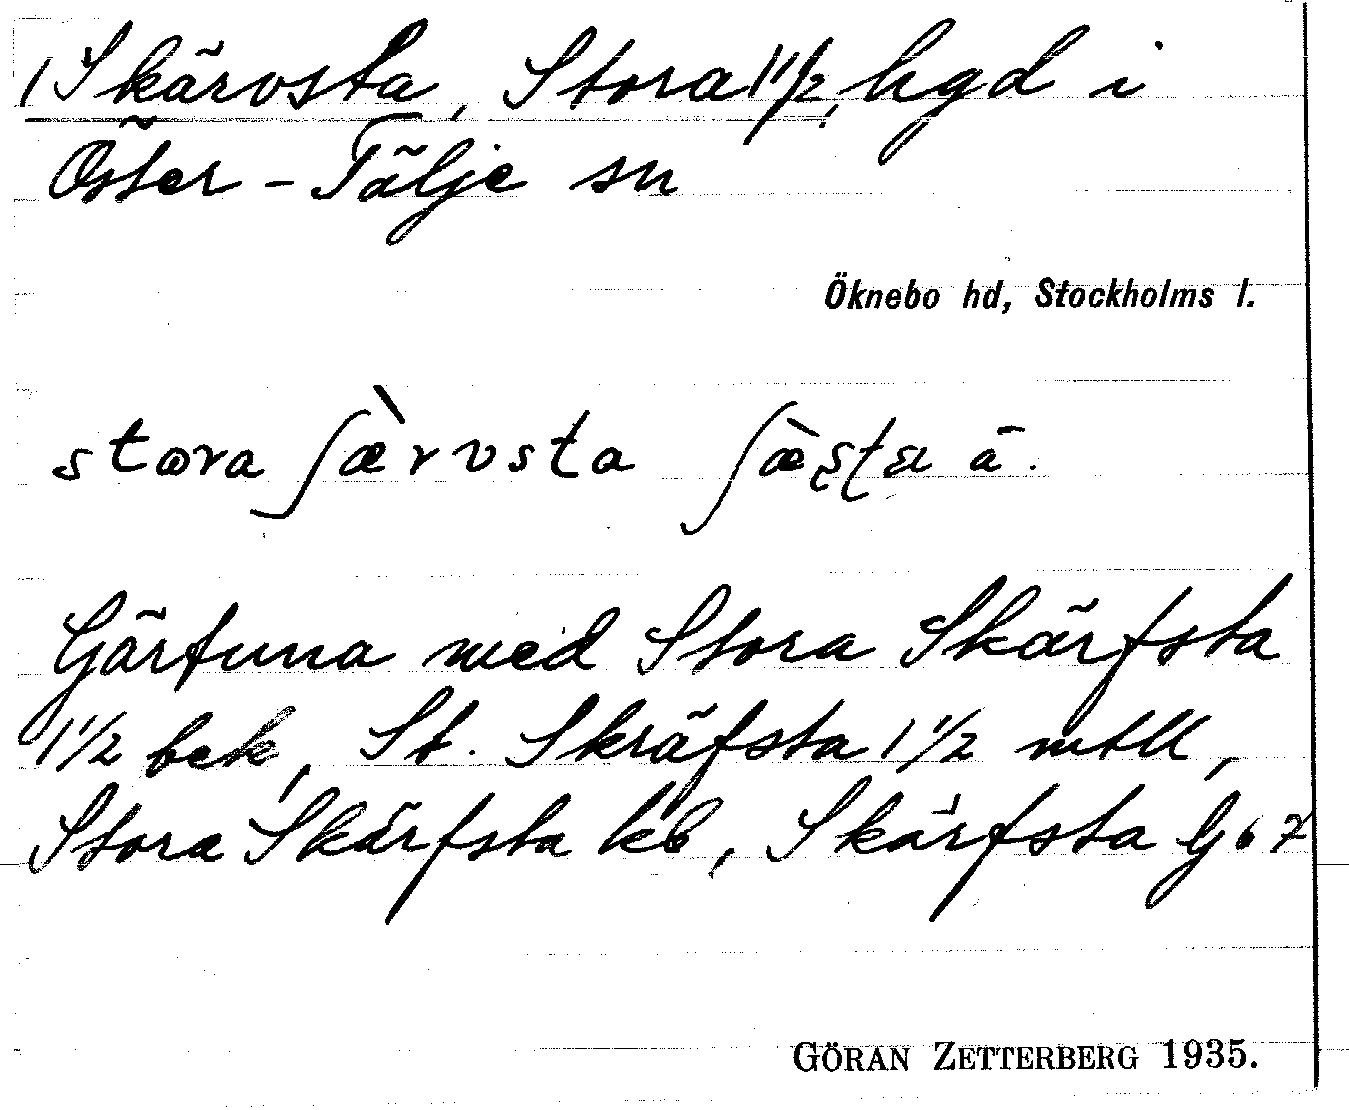 1 Skärvsta, Stora 1 1/2, hgd i
Öster-Tälje sn
Öknebo hd, Stockholms l.
stora ʃæ̀rvsta ʃæ̀ʂʈa ä.
Gärtuna med Stora Skärfsta
1 1/2 bek, St. Skräfsta 1 1/2 mtll,
Stora Skärfsta kb, Skärfsta
GÖRAN ZETTERBERG 1935.